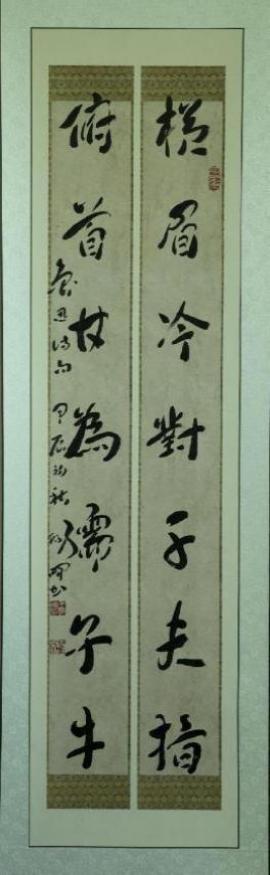 橫眉冷對千夫指
俯首甘為孺子牛
魯迅詩句 甲辰初秋